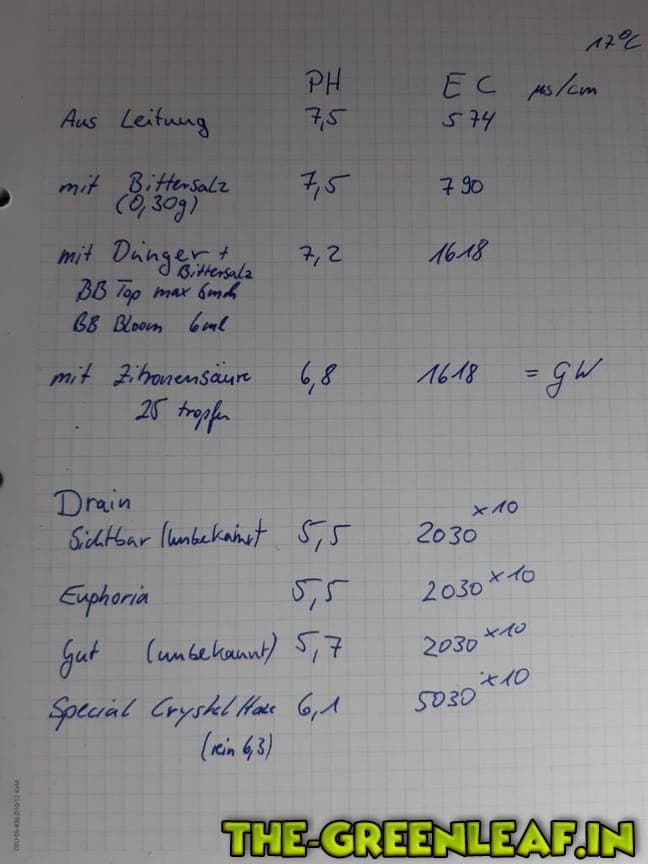 17°C
PH EC µs/cm
Aus Leitung 7,5 574
mit Bittersalz 7,5 790
(0,30g)
mit Dünger + 7,2 1618
Bittersalz
BB Top max 6
BB Bloom 6ml
mit Zitronensäure 6,8 1618 = GW
25 tropfen
Drain
Sichtbar (unbekannt 5,5 2030 x10
Euphoria 5,5 2030 x10
Gut (unbekannt) 5,7 2030 x10
Special Crystel 6,1 5030 x10
(rein 6,3)
THE-GREENLEAF.IN